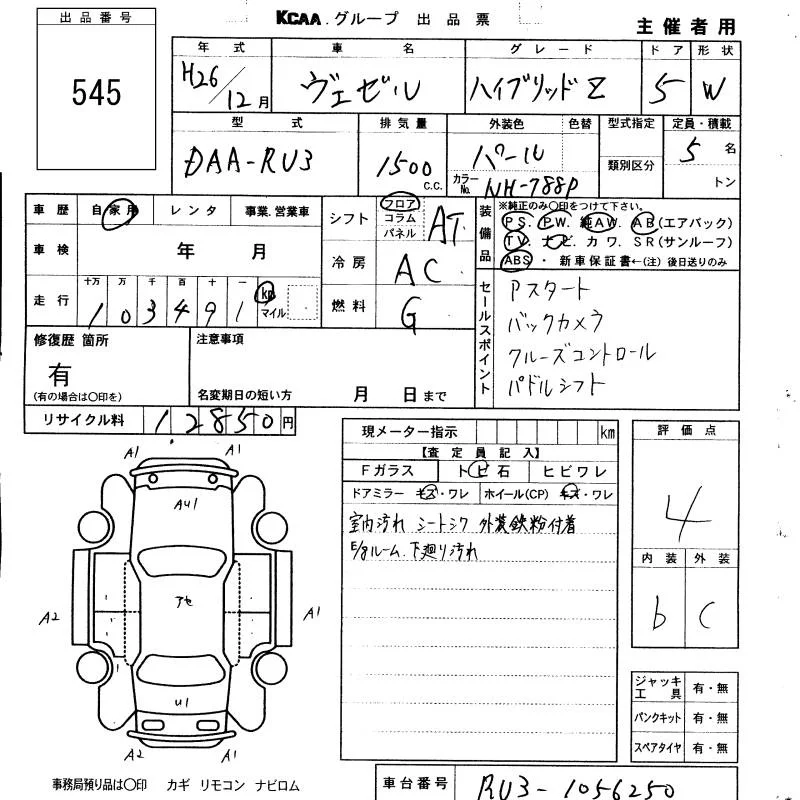 KCAA グループ 出品票
主催者用
出品番号
545
年式 車名 グレード ドア 形状
H26/12月 ヴェゼル ハイブリッドZ 5 W
型式 排気量 外装色 色替 型式指定 定員・積載
DAA-RU3 1500 C.C. パール 5 名
カラーNo. NH-788P 類別区分 トン
車歴 自家用 レンタ 事業.営業車
車検 年 月
走行 十万 万 千 百 十 一
103491 km マイル
シフト フロア コラム パネル AT
冷房 AC
燃料 G
装備品 ※純正のみ〇印をつけて下さい。
PS. PW. 純AW. AB(エアバック)
TV. ナビ カワ. SR(サンルーフ)
ABS ・ 新車保証書←(注) 後日送りのみ
セールスポイント
Pスタート
バックカメラ
クルーズコントロール
パドルシフト
修復歴 箇所
有
(有の場合は〇印を)
注意事項
名変期日の短い方 月 日まで
リサイクル料 12850円
現メーター指示 km
【査定員記入】
Fガラス トビ石 ヒビワレ
ドアミラー キズ・ワレ ホイール(CP) キズ・ワレ
室内汚れ シートシワ 外装鉄粉付着
E/gルーム.下廻り汚れ
評価点
4
内装 外装
b C
A1 A1
AU1
アセ
A2 A1
U1
A2 A1
ジャッキ工具 有・無
パンクキット 有・無
スペアタイヤ 有・無
事務局預り品は〇印 カギ リモコン ナビロム
車台番号 RU3-1056250